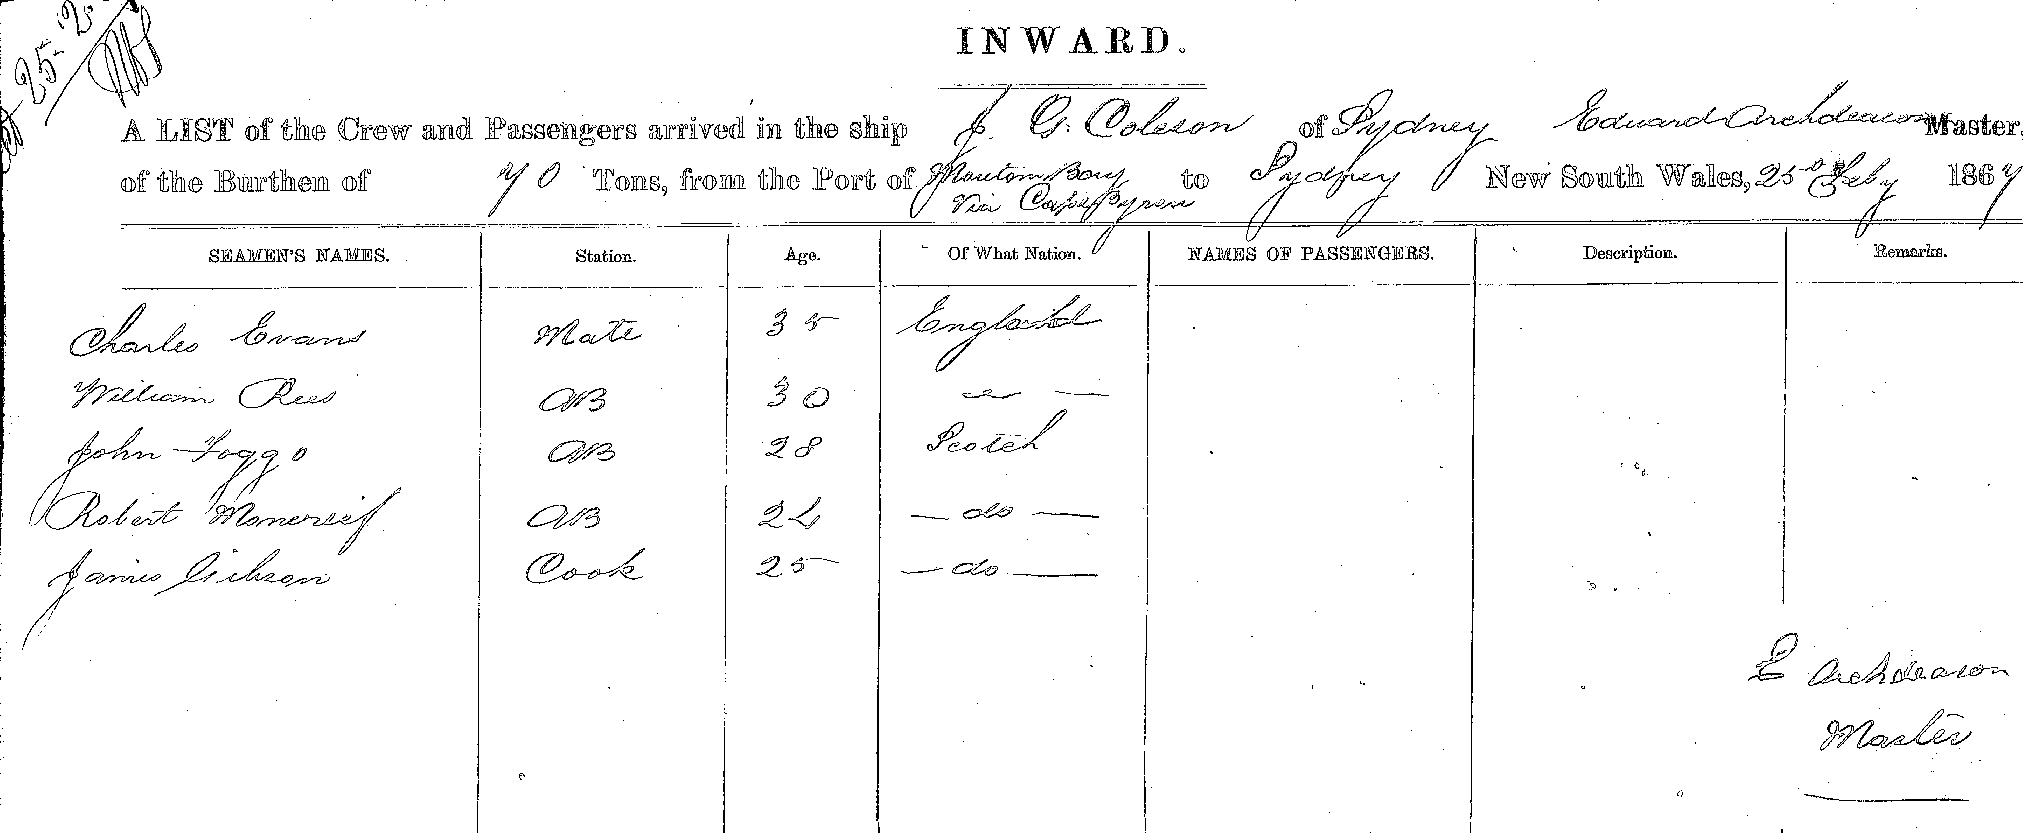 25
INWARD.
A LIST of the Crew and Passengers arrived in the ship J. G. Coleson of Sydney Edward Archdeacon Master,
of the Burthen of 70 Tons, from the Port of Moreton Bay to Sydney New South Wales, 25 Feby 1867
Via Cape Byren
SEAMEN'S NAMES. Station. Age. Of What Nation. NAMES OF PASSENGERS. Description. Remarks.
Charles Evans Mate 35 England
William Rees AB 30 — —
John Foggo AB 28 Scotch
Robert Moncrief AB 24 — do —
James Gibson Cook 25 — do —
E Archdeacon
Master